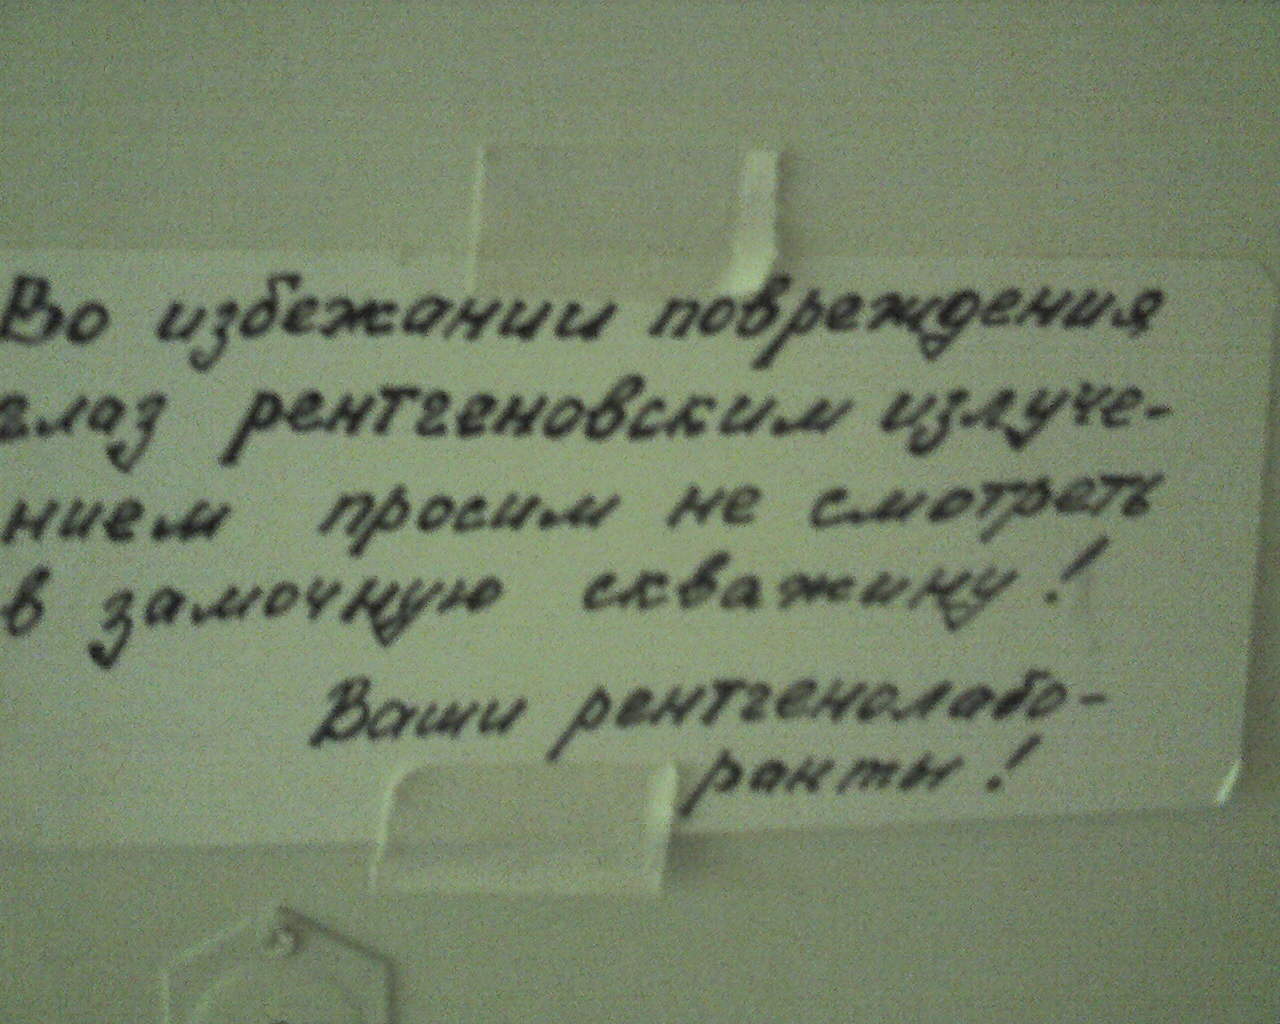 Во избежании повреждения
глаз рентгеновским излуче-
нием просим не смотреть
в замочную скважину!
Ваши рентгенолабо-
ранты!